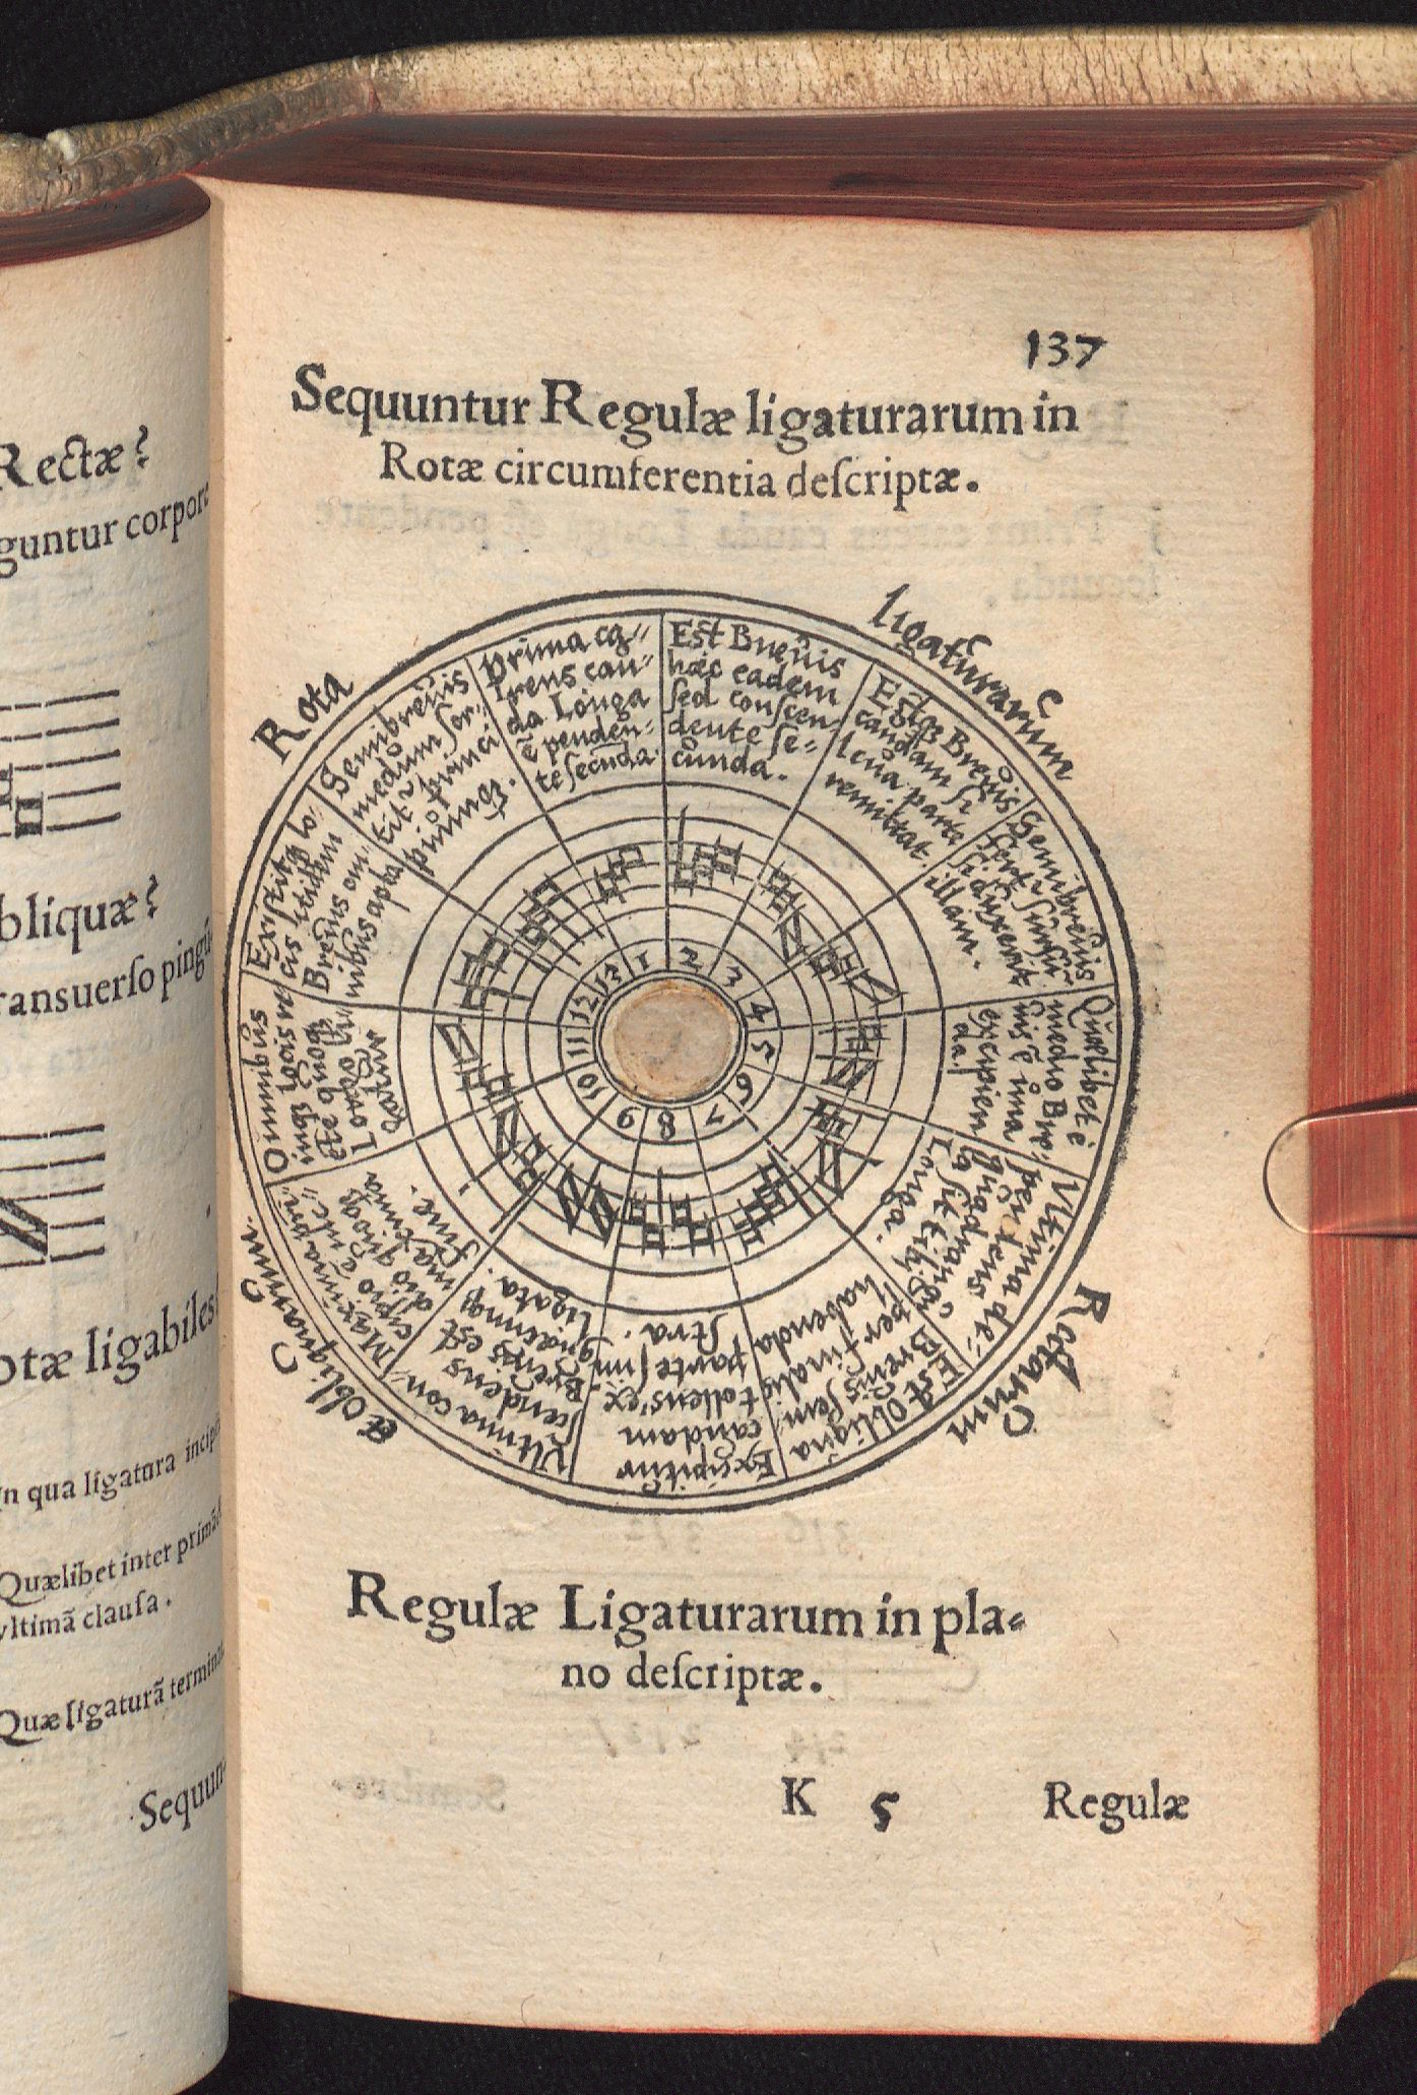 Rectæ?
guntur corpore
bliquæ?
ransuerſo pingu
otæ ligabiles
n qua ligatura incipi
Quælibet inter primã
vltimã clauſa.
Quæ ligaturã termina
Sequun-
137
Sequuntur Regulæ ligaturarum in
Rotæ circumferentia deſcriptæ.
Rota
ligaturarum
Rectarum
et obliquarum
Prima ca=
rens cau=
da Longa
ē penden=
te ſecunda.
Est Breuis
hæc eadem
ſed conſcen
dente ſe=
cunda.
Breuis
caudam ſi
leua parte
remittat.
Semibreuis
fert
ſi duxerit
illam.
Quælibet ē
medio Bre,
uis ē
excipien
da.
Vltima de=
pendens
quadrangu
la ſit tibi
Longa.
Est obliqua
Breuis ſem
per finalis
habenda
Excipitur
caudam
tollens ex
parte ſini
ſtra.
Vltima con
ſcendens
Breuis est
quæcunq;
ligata.
Maxima prī=
cipio
dio quoq;
maxima
fine.
Omnibus
inq; locis
ete quoq;
Longo
Existit
cis itidem
Breuis om,
nibus apta
Semibreuis
medium ſor=
princi
1 2 3 4 5 6 7 8 9 10 11 12 13
Regulæ Ligaturarum in pla-
no deſcriptæ.
K 5 Regulæ